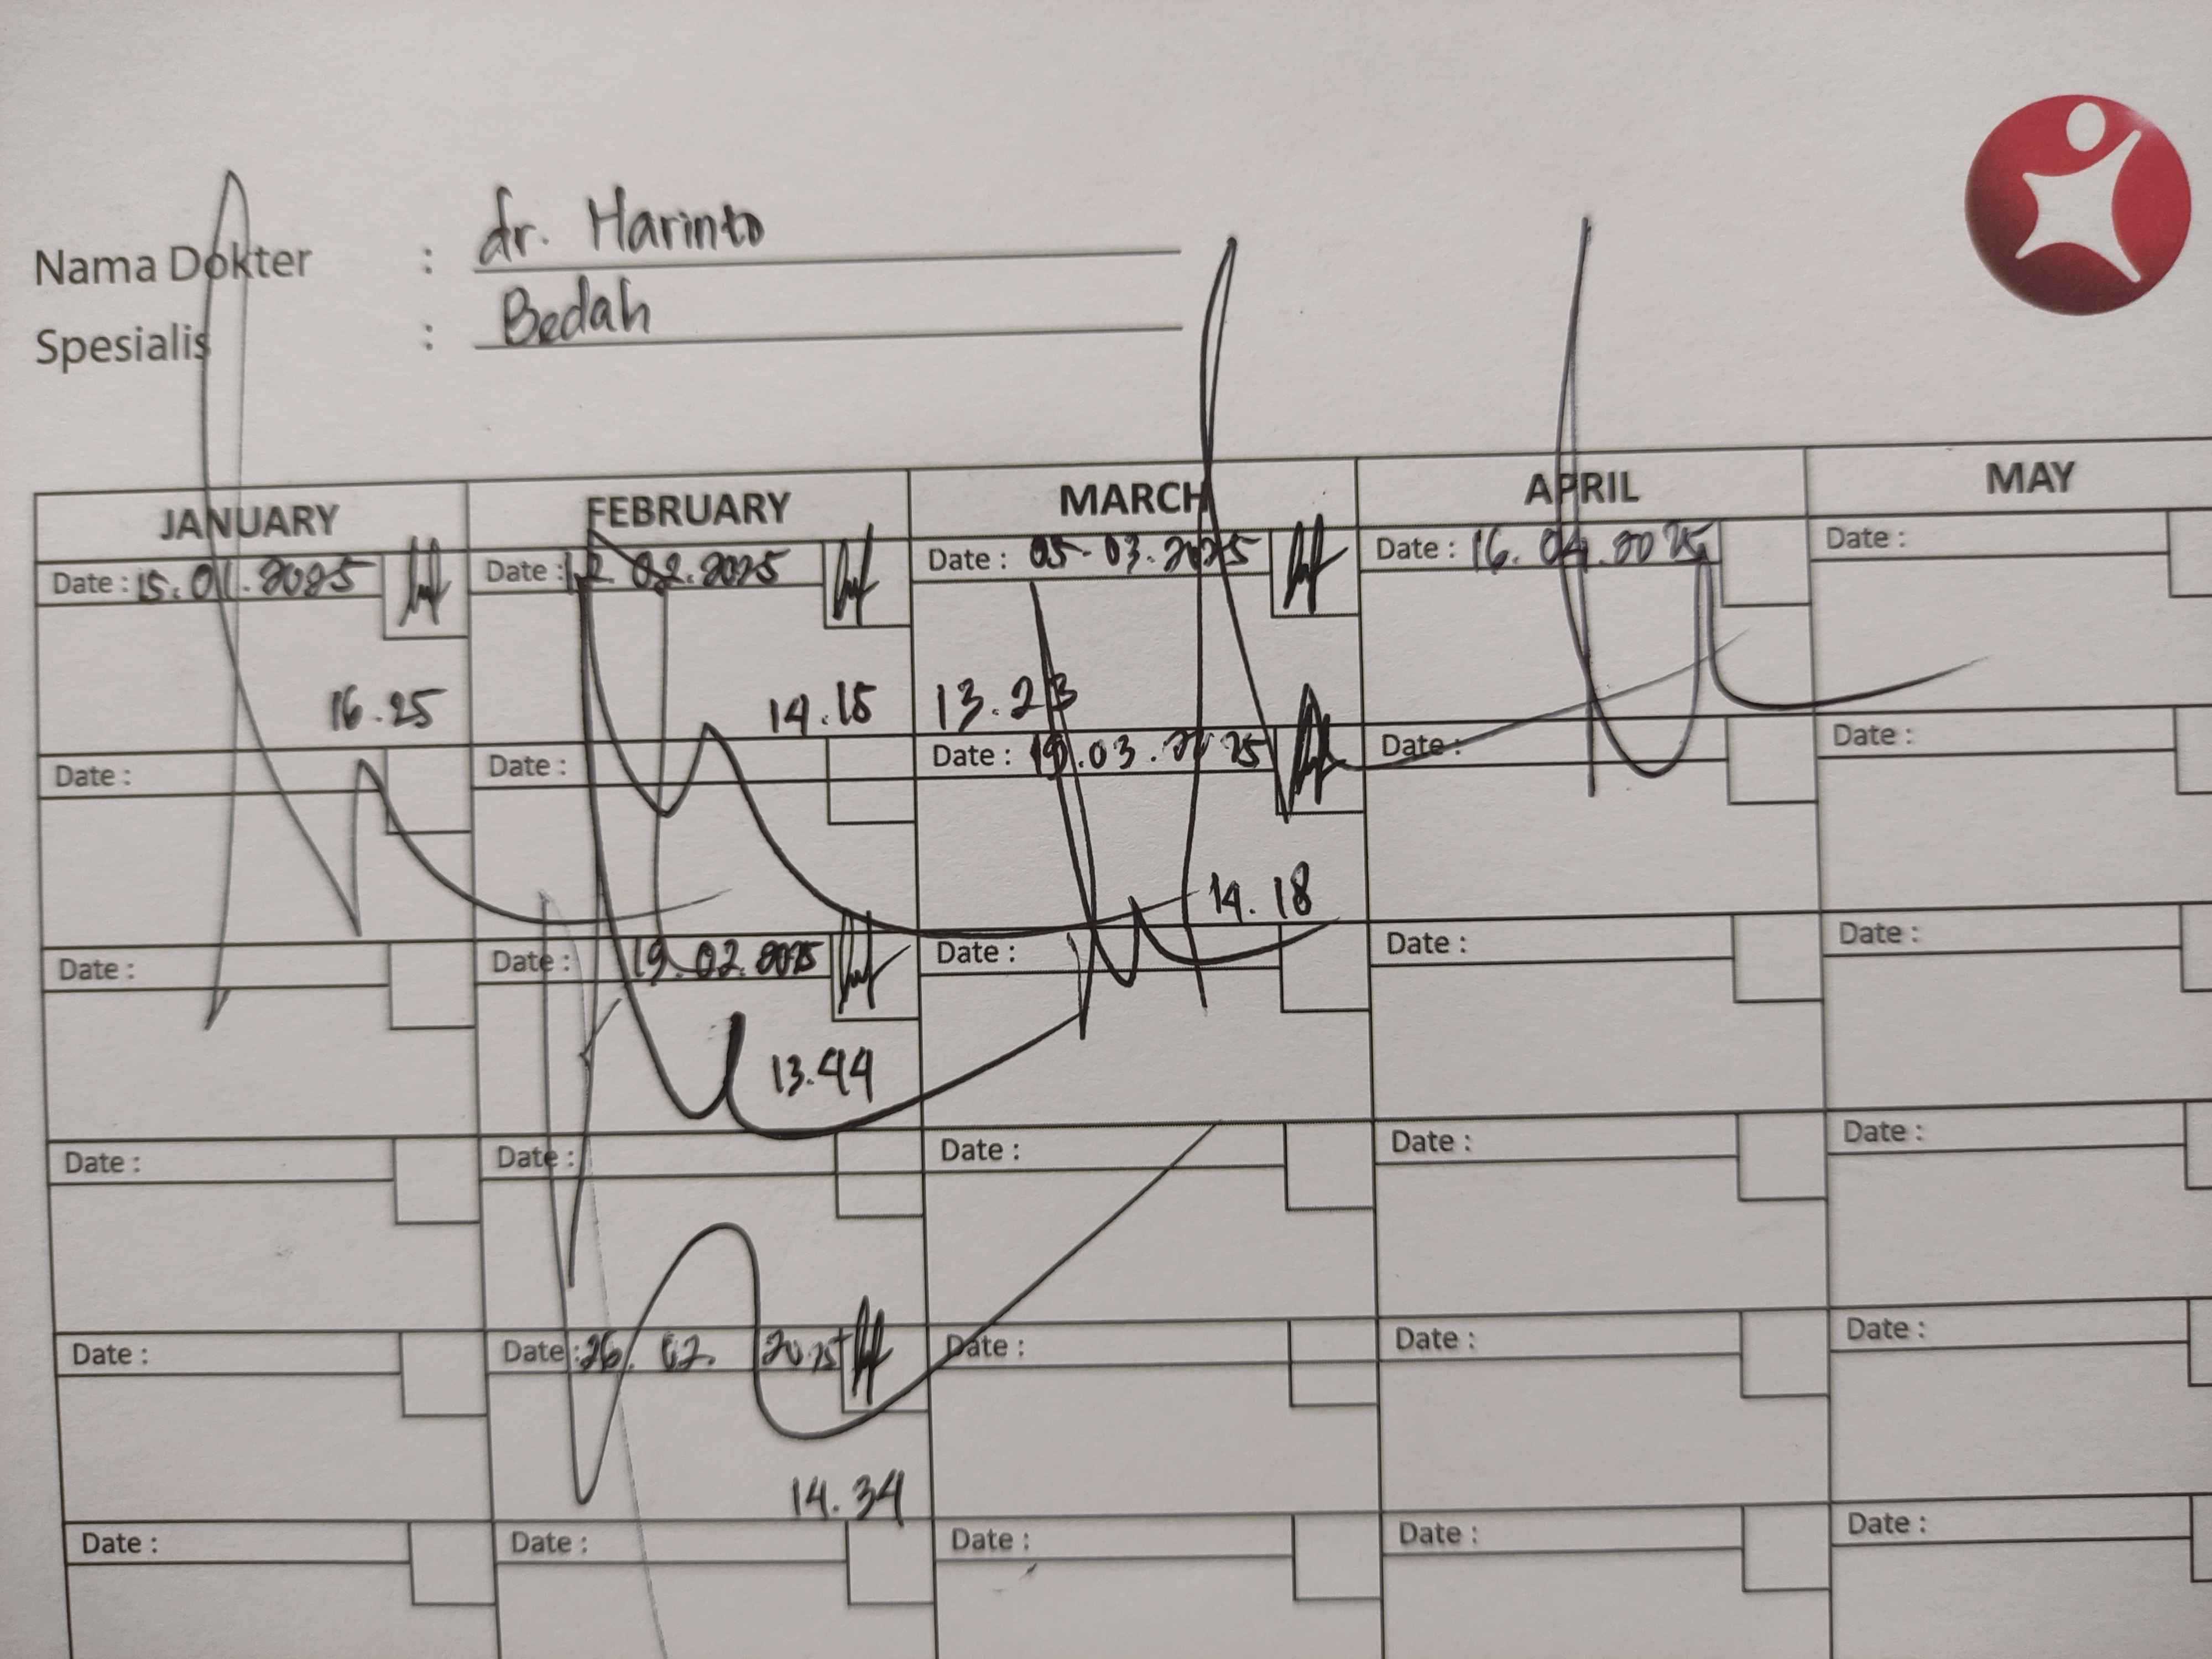 Nama Dokter : dr. Harinto
Spesialis : Bedah
JANUARY FEBRUARY MARCH APRIL MAY
Date : 15.01.2025 Date : 12.02.2025 Date : 05-03.2025 Date : 16.04.2025 Date :
16.25 14.15 13.23
Date : Date : Date : 19.03.2025 Date : Date :
14.18
Date : Date : 19.02.2025 Date : Date : Date :
13.44
Date : Date : Date : Date : Date :
Date : Date : 26.02.2025 Date : Date : Date :
14.34
Date : Date : Date : Date : Date :